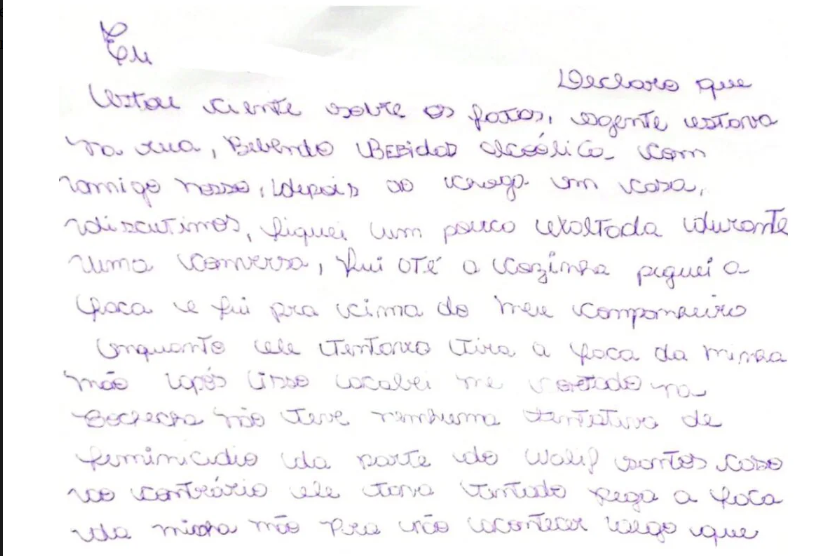 Eu
Declaro que
Estou ciente sobre os fatos, agente estava
na rua, Bebendo BEBIDAS alcoólica com
amigo nosso, depois ao chega em casa,
discutimos, fiquei um pouco exaltada durante
uma conversa, fui até a cozinha peguei a
faca e fui pra cima do meu companheiro
enquanto ele tentava tira a faca da minha
mão após isso acabei me cortado na
Bochecha não teve nenhuma tentativa de
feminicidio da parte do Walif santos caso
ao contrário ele tava tentado pega a faca
da minha mão pra não acontecer algo que